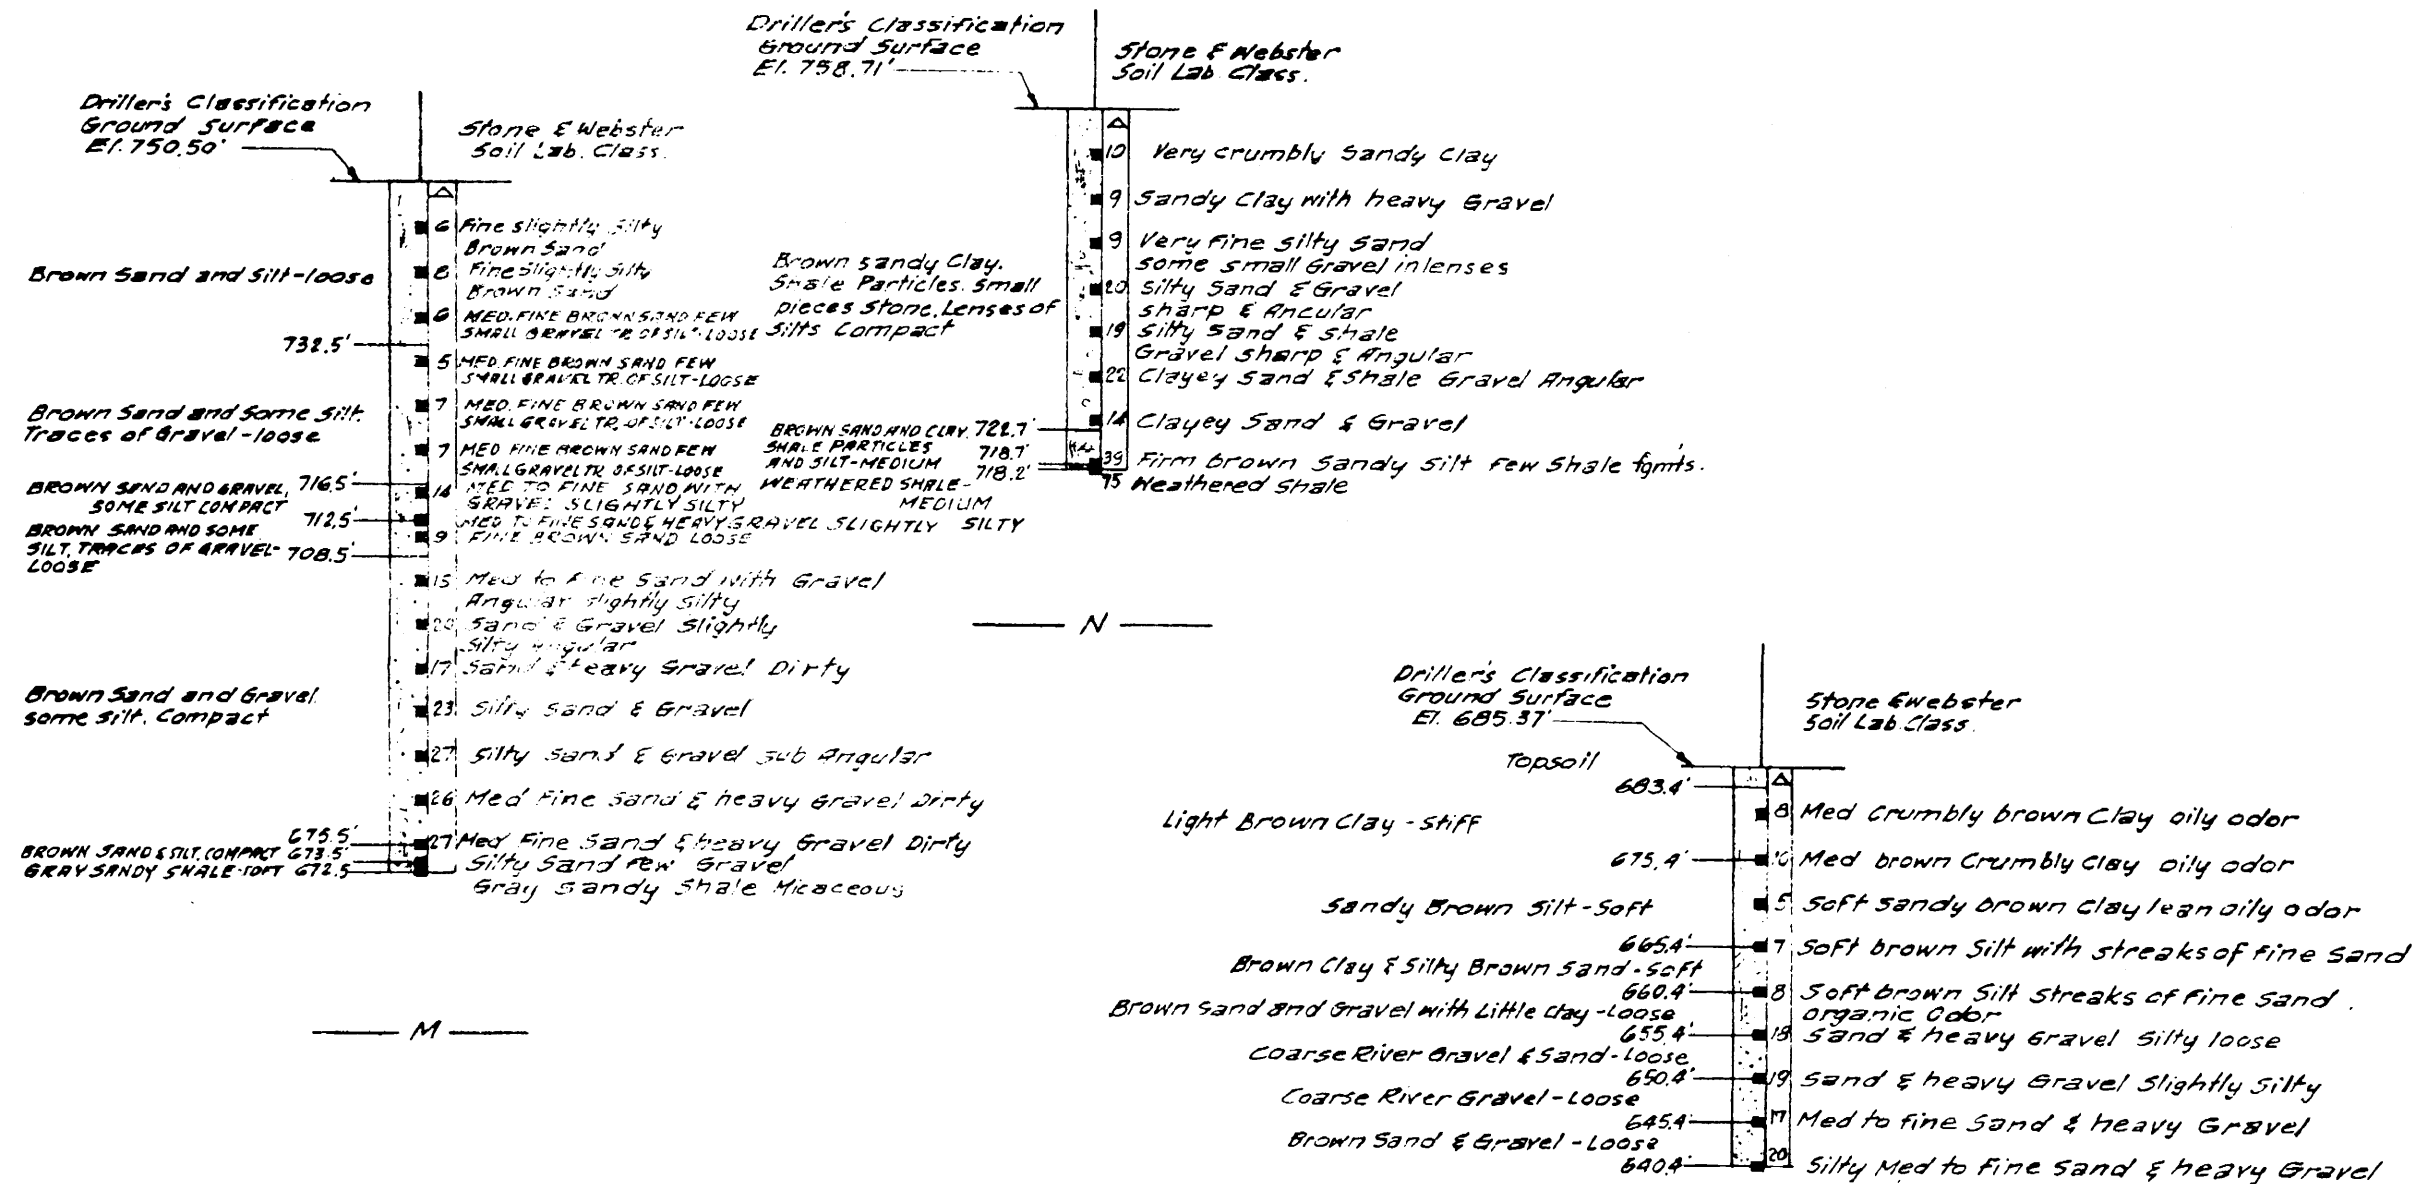 Driller's Classification
Ground Surface
El. 750.50'
Stone & Webster
Soil Lab. Class.
Brown Sand and Silt-loose
732.5'
Brown Sand and Some Silt.
Traces of Gravel-loose
716.5'
BROWN SAND AND GRAVEL,
SOME SILT COMPACT
712.5'
BROWN SAND AND SOME
SILT, TRACES OF GRAVEL-
LOOSE
708.5'
Brown Sand and Gravel
some silt. Compact
675.5'
BROWN SAND & SILT, COMPACT 673.5'
GRAY SANDY SHALE-TOFT 672.5
6 Fine slightly Silty
Brown Sand
8 Fine Slightly Silty
Brown Sand
6 MED. FINE BROWN SAND FEW
SMALL GRAVEL TR. OF SILT-LOOSE
5 MED. FINE BROWN SAND FEW
SMALL GRAVEL TR. OF SILT-LOOSE
7 MED. FINE BROWN SAND FEW
SMALL GRAVEL TR. OF SILT-LOOSE
7 MED FINE BROWN SAND FEW
SMALL GRAVEL TR. OF SILT-LOOSE
14 MED TO FINE SAND WITH
GRAVEL SLIGHTLY SILTY
MED TO FINE SAND & HEAVY GRAVEL SLIGHTLY SILTY
9 FINE BROWN SAND LOOSE
15 Med to Fine Sand with Gravel
Angular slightly silty
20 Sand & Gravel Slightly
Silty Angular
17 Sand & heavy Gravel Dirty
23 Silty Sand & Gravel
27 Silty Sand & Gravel sub Angular
26 Med Fine Sand & heavy Gravel Dirty
27 Med Fine Sand & heavy Gravel Dirty
Silty Sand few Gravel
Gray Sandy Shale Micaceous
M
Driller's Classification
Ground Surface
El. 758.71'
Stone & Webster
Soil Lab. Class.
Brown sandy Clay.
Shale Particles. Small
pieces Stone, Lenses of
Silts Compact
BROWN SAND AND CLAY, 722.7'
SHALE PARTICLES 718.7'
AND SILT-MEDIUM
718.2'
WEATHERED SHALE-
MEDIUM
10 Very crumbly Sandy Clay
9 Sandy Clay with heavy Gravel
9 Very fine silty sand
some small Gravel in lenses
20 Silty Sand & Gravel
sharp & Ancular
19 Silty Sand & shale
Gravel sharp & Angular
22 Clayey Sand & Shale Gravel Angular
14 Clayey Sand & Gravel
39 Firm brown Sandy Silt few Shale fgmts.
75 Weathered Shale
N
Driller's Classification
Ground Surface
El. 685.37'
Stone & Webster
Soil Lab. Class.
Topsoil
683.4'
Light Brown Clay - Stiff
675.4'
Sandy Brown Silt-Soft
665.4'
Brown Clay & Silty Brown Sand-Soft
660.4'
Brown Sand and Gravel with Little Clay-Loose
655.4'
Coarse River Gravel & Sand-Loose
650.4'
Coarse River Gravel-Loose
645.4'
Brown Sand & Gravel-Loose
640.4'
8 Med Crumbly brown Clay oily odor
10 Med brown Crumbly Clay oily odor
5 Soft sandy brown Clay lean oily odor
7 Soft brown Silt with streaks of fine sand
8 Soft brown Silt streaks of fine sand.
organic Odor
18 Sand & heavy Gravel Silty loose
19 Sand & heavy Gravel Slightly silty
17 Med to fine Sand & heavy Gravel
20 Silty Med to Fine Sand & heavy Gravel